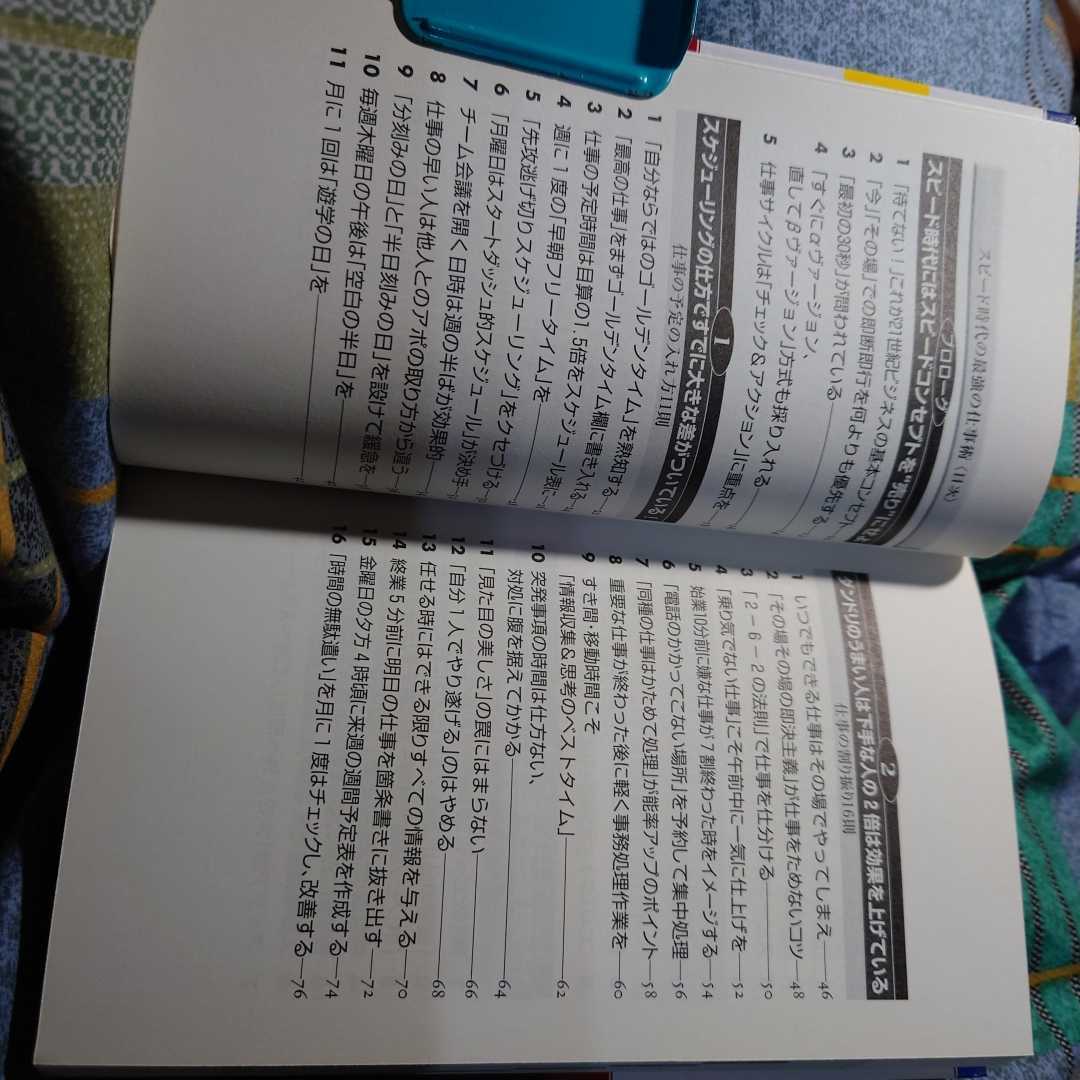 スピード時代の最強の仕事術〈目次〉
プロローグ
スピード時代にはスピードコンセプトを"売り"にせよ
1 「待てない！」これが21世紀ビジネスの基本コンセプト
2 「今」「その場」での即断即行を何よりも優先する
3 「最初の30秒」が問われている
4 「すぐにαヴァージョン、
直してβヴァージョン」方式も採り入れる
5 仕事サイクルは「チェック＆アクション」に重点を
1
スケジューリングの仕方ですでに大きな差がついている
仕事の予定の入れ方11則
1 「自分ならではのゴールデンタイム」を熟知する
2 「最高の仕事」をまずゴールデンタイム欄に書き入れる
3 仕事の予定時間は目算の1.5倍をスケジュール表に
4 週に1度の「早朝フリータイム」を
5 「先攻逃げ切りスケジューリング」をクセづける
6 「月曜日はスタートダッシュ的スケジュール」が決め手
7 チーム会議を開く日時は週の半ばが効果的
8 仕事の早い人は他人とのアポの取り方から違う
9 「分刻みの日」と「半日刻みの日」を設けて緩急を
10 毎週木曜日の午後は「空白の半日」を
11 月に1回は「遊学の日」を
2
ダンドリのうまい人は下手な人の2倍は効果を上げている
仕事の割り振り16則
1 いつでもできる仕事はその場でやってしまえ 46
2 「その場その場の即決主義」が仕事をためないコツ 48
3 「2－6－2の法則」で仕事を仕分ける 50
4 「乗り気でない仕事」こそ午前中に一気に仕上げを 52
5 始業10分前に嫌な仕事が7割終わった時をイメージする 54
6 「電話のかかってこない場所」を予約して集中処理 56
7 「同種の仕事はかためて処理」が能率アップのポイント 58
8 重要な仕事が終わった後に軽く事務処理作業を 60
9 すき間・移動時間こそ
「情報収集＆思考のベストタイム」 62
10 突発事項の時間は仕方ない、
対処に腹を据えてかかる 64
11 「見た目の美しさ」の罠にはまらない 66
12 「自分1人でやり遂げる」のはやめる 68
13 任せる時にはできる限りすべての情報を与える 70
14 終業5分前に明日の仕事を箇条書きに抜き出す 72
15 金曜日の夕方4時頃に来週の週間予定表を作成する 74
16 「時間の無駄遣い」を月に1度はチェックし、改善する 76